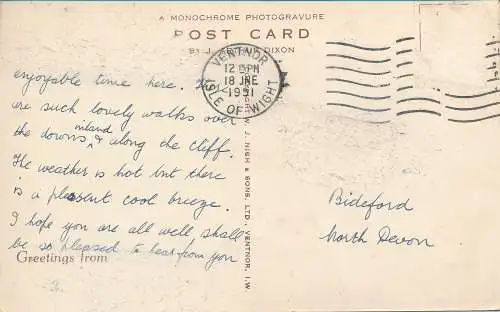 A MONOCHROME PHOTOGRAVURE
POST CARD
BY J. ARTHUR DIXON
VENTNOR
12 PM
18 JNE
1951
ISLE OF WIGHT
enjoyable time here. The
are such lovely walks over
the downs inland & along the cliff.
The weather is hot but there
is a plesent cool breeze.
I hope you are all well shall
be so plessed to hear from you
Greetings from
W. J. NIGH & SONS, LTD., VENTNOR, I.W.
Bideford
North Devon